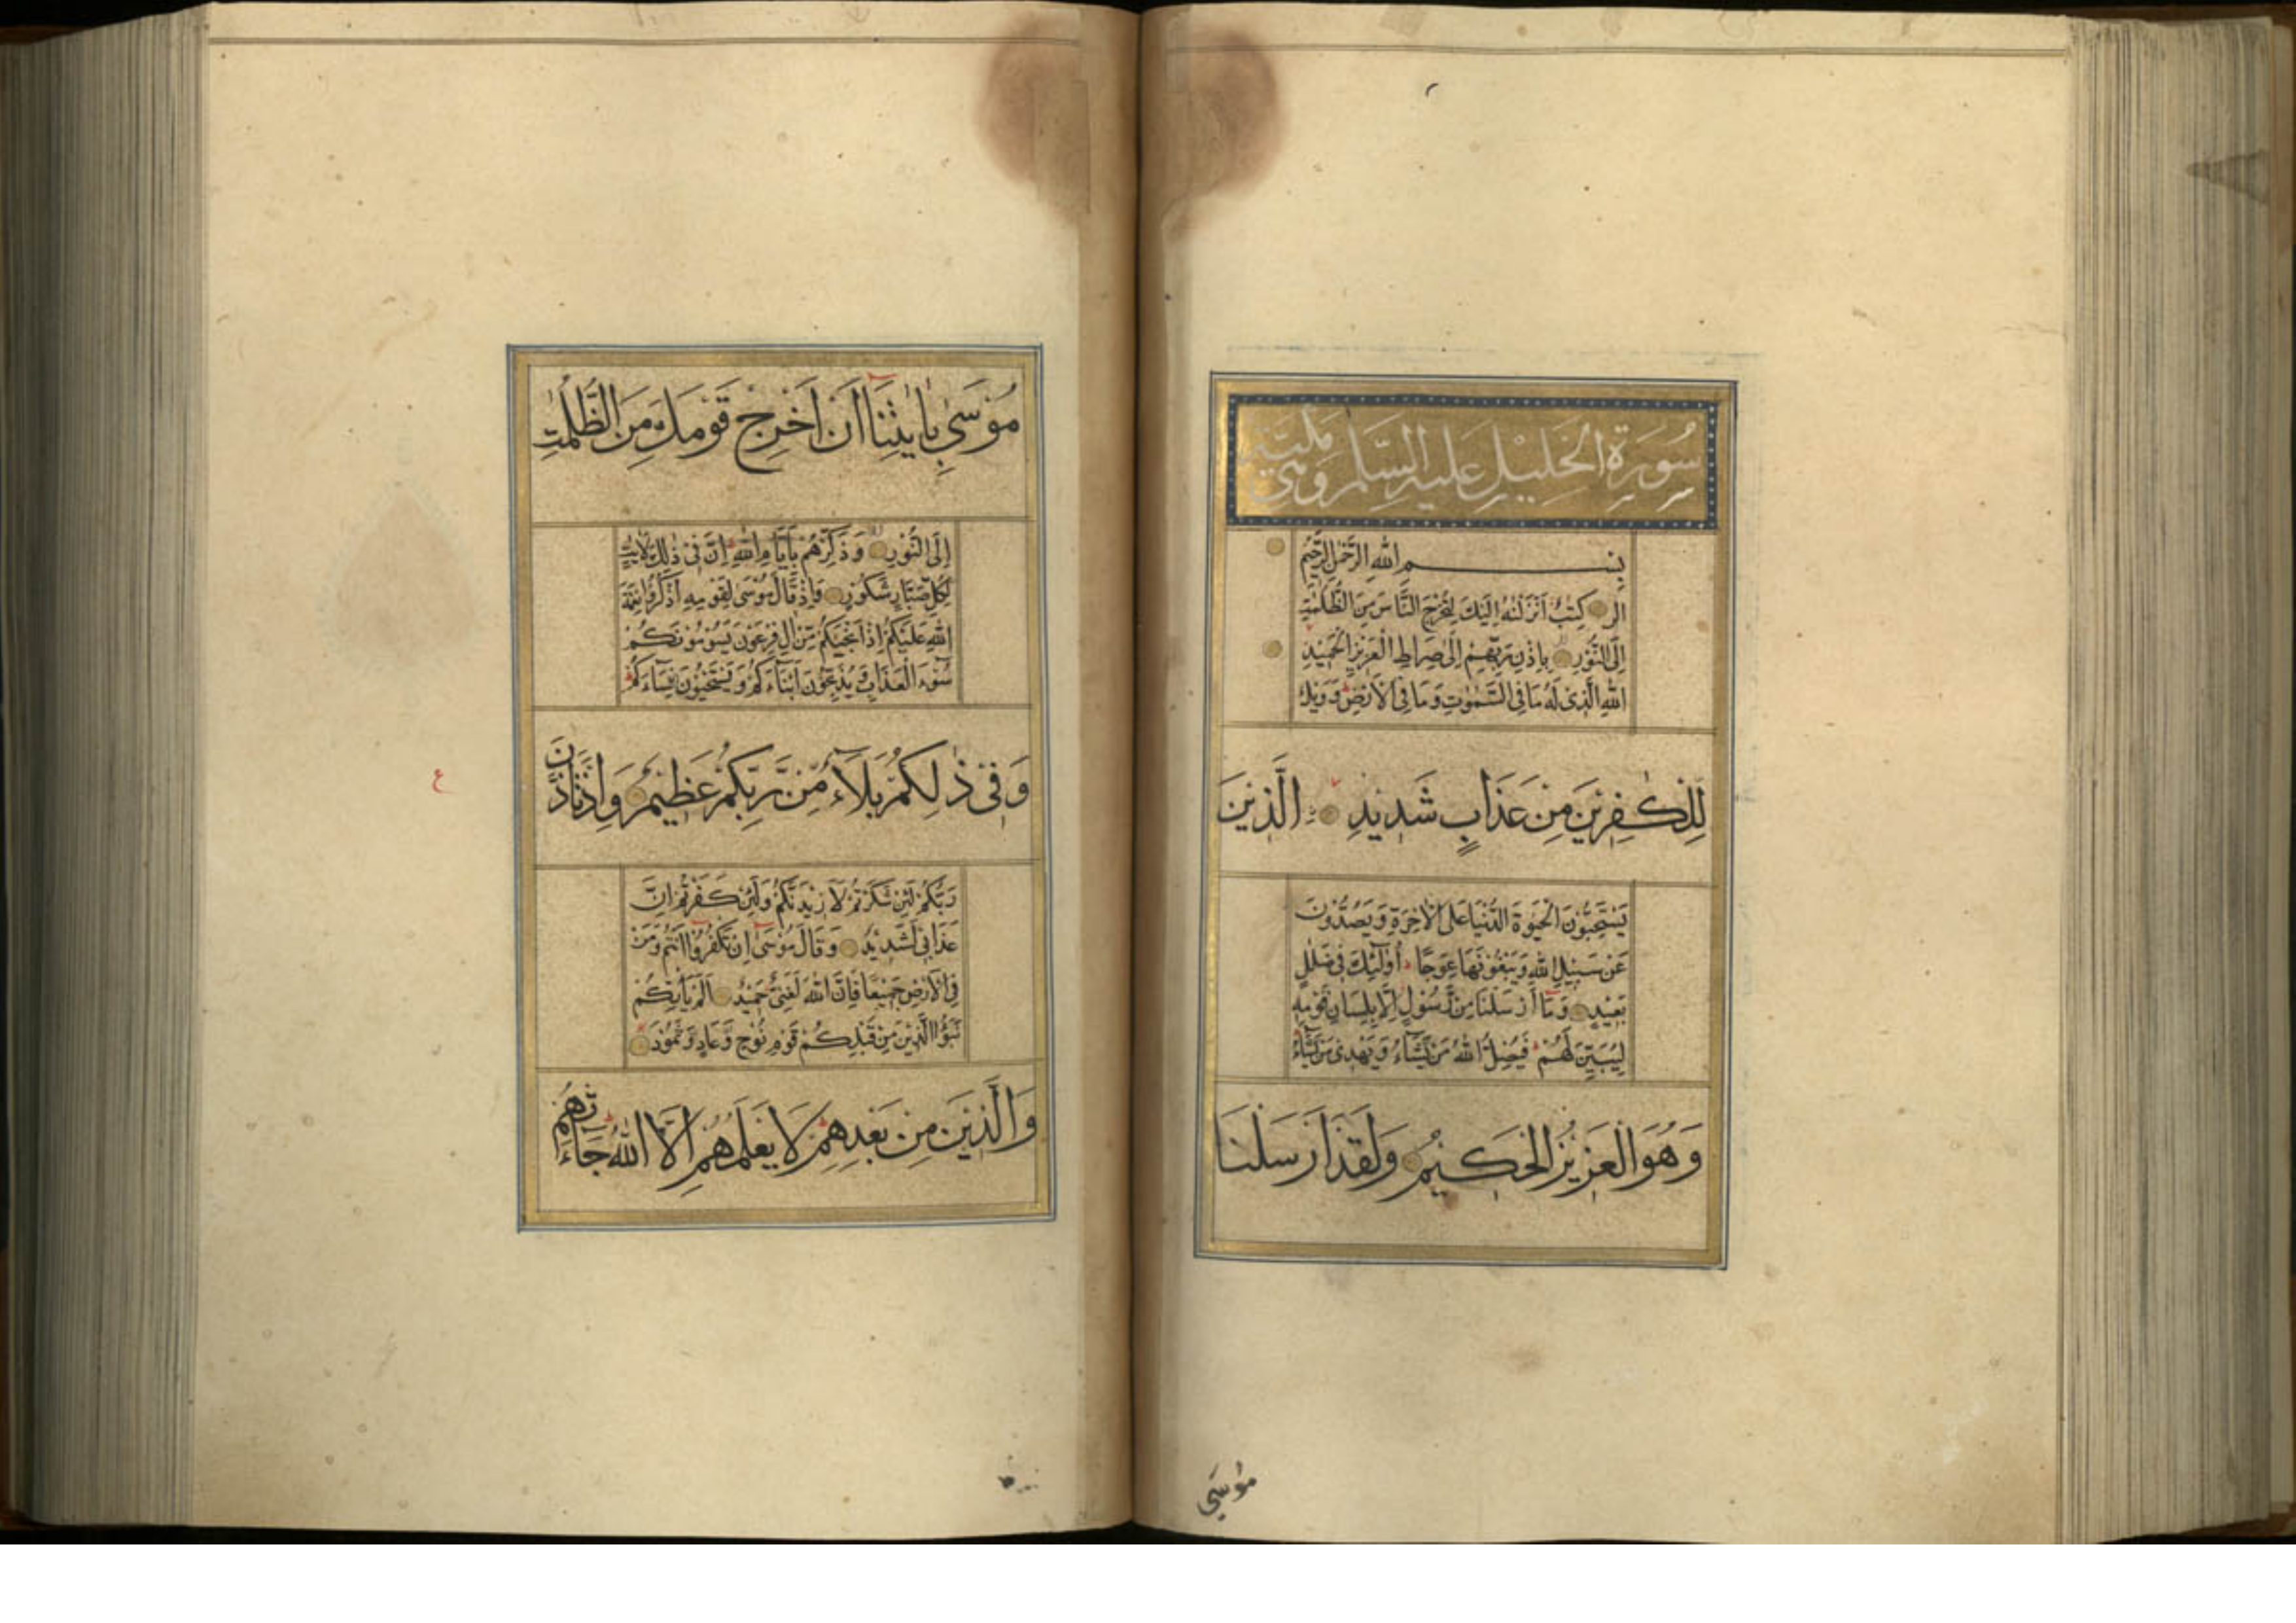 سُورَةُ الْخَلِيْلِ عَلَيْهِ السَّلَم وَهِيَ مَكِّيَّة
بِسْمِ اللهِ الرَّحْمٰنِ الرَّحِيْمِ
الر كِتٰبٌ اَنْزَلْنٰهُ اِلَيْكَ لِتُخْرِجَ النَّاسَ مِنَ الظُّلُمٰتِ
اِلَى النُّوْرِ بِاِذْنِ رَبِّهِمْ اِلٰى صِرَاطِ الْعَزِيْزِ الْحَمِيْدِ
اللهِ الَّذِيْ لَهُ مَا فِي السَّمٰوٰتِ وَمَا فِي الْاَرْضِ وَوَيْلٌ
لِلْكٰفِرِيْنَ مِنْ عَذَابٍ شَدِيْدٍ الَّذِيْنَ
يَسْتَحِبُّوْنَ الْحَيٰوةَ الدُّنْيَا عَلَى الْاٰخِرَةِ وَيَصُدُّوْنَ
عَنْ سَبِيْلِ اللهِ وَيَبْغُوْنَهَا عِوَجًا اُولٰٓئِكَ فِيْ ضَلٰلٍ
بَعِيْدٍ وَمَآ اَرْسَلْنَا مِنْ رَسُوْلٍ اِلَّا بِلِسَانِ قَوْمِهِ
لِيُبَيِّنَ لَهُمْ فَيُضِلُّ اللهُ مَنْ يَّشَآءُ وَيَهْدِيْ مَنْ يَّشَآءُ
وَهُوَ الْعَزِيْزُ الْحَكِيْمُ وَلَقَدْ اَرْسَلْنَا
مُوْسٰى
مُوْسٰى بِاٰيٰتِنَآ اَنْ اَخْرِجْ قَوْمَكَ مِنَ الظُّلُمٰتِ
اِلَى النُّوْرِ وَذَكِّرْهُمْ بِاَيَّامِ اللهِ اِنَّ فِيْ ذٰلِكَ لَاٰيٰتٍ
لِكُلِّ صَبَّارٍ شَكُوْرٍ وَاِذْ قَالَ مُوْسٰى لِقَوْمِهِ اذْكُرُوْا نِعْمَةَ
اللهِ عَلَيْكُمْ اِذْ اَنْجٰيكُمْ مِّنْ اٰلِ فِرْعَوْنَ يَسُوْمُوْنَكُمْ
سُوْٓءَ الْعَذَابِ وَيُذَبِّحُوْنَ اَبْنَآءَكُمْ وَيَسْتَحْيُوْنَ نِسَآءَكُمْ
وَفِيْ ذٰلِكُمْ بَلَآءٌ مِّنْ رَّبِّكُمْ عَظِيْمٌ وَاِذْ تَاَذَّنَ
ع
رَبُّكُمْ لَئِنْ شَكَرْتُمْ لَاَزِيْدَنَّكُمْ وَلَئِنْ كَفَرْتُمْ اِنَّ
عَذَابِيْ لَشَدِيْدٌ وَقَالَ مُوْسٰٓى اِنْ تَكْفُرُوْٓا اَنْتُمْ وَمَنْ
فِي الْاَرْضِ جَمِيْعًا فَاِنَّ اللهَ لَغَنِيٌّ حَمِيْدٌ اَلَمْ يَاْتِكُمْ
نَبَؤُا الَّذِيْنَ مِنْ قَبْلِكُمْ قَوْمِ نُوْحٍ وَّعَادٍ وَّثَمُوْدَ
وَالَّذِيْنَ مِنْ بَعْدِهِمْ لَا يَعْلَمُهُمْ اِلَّا اللهُ جَآءَتْهُمْ